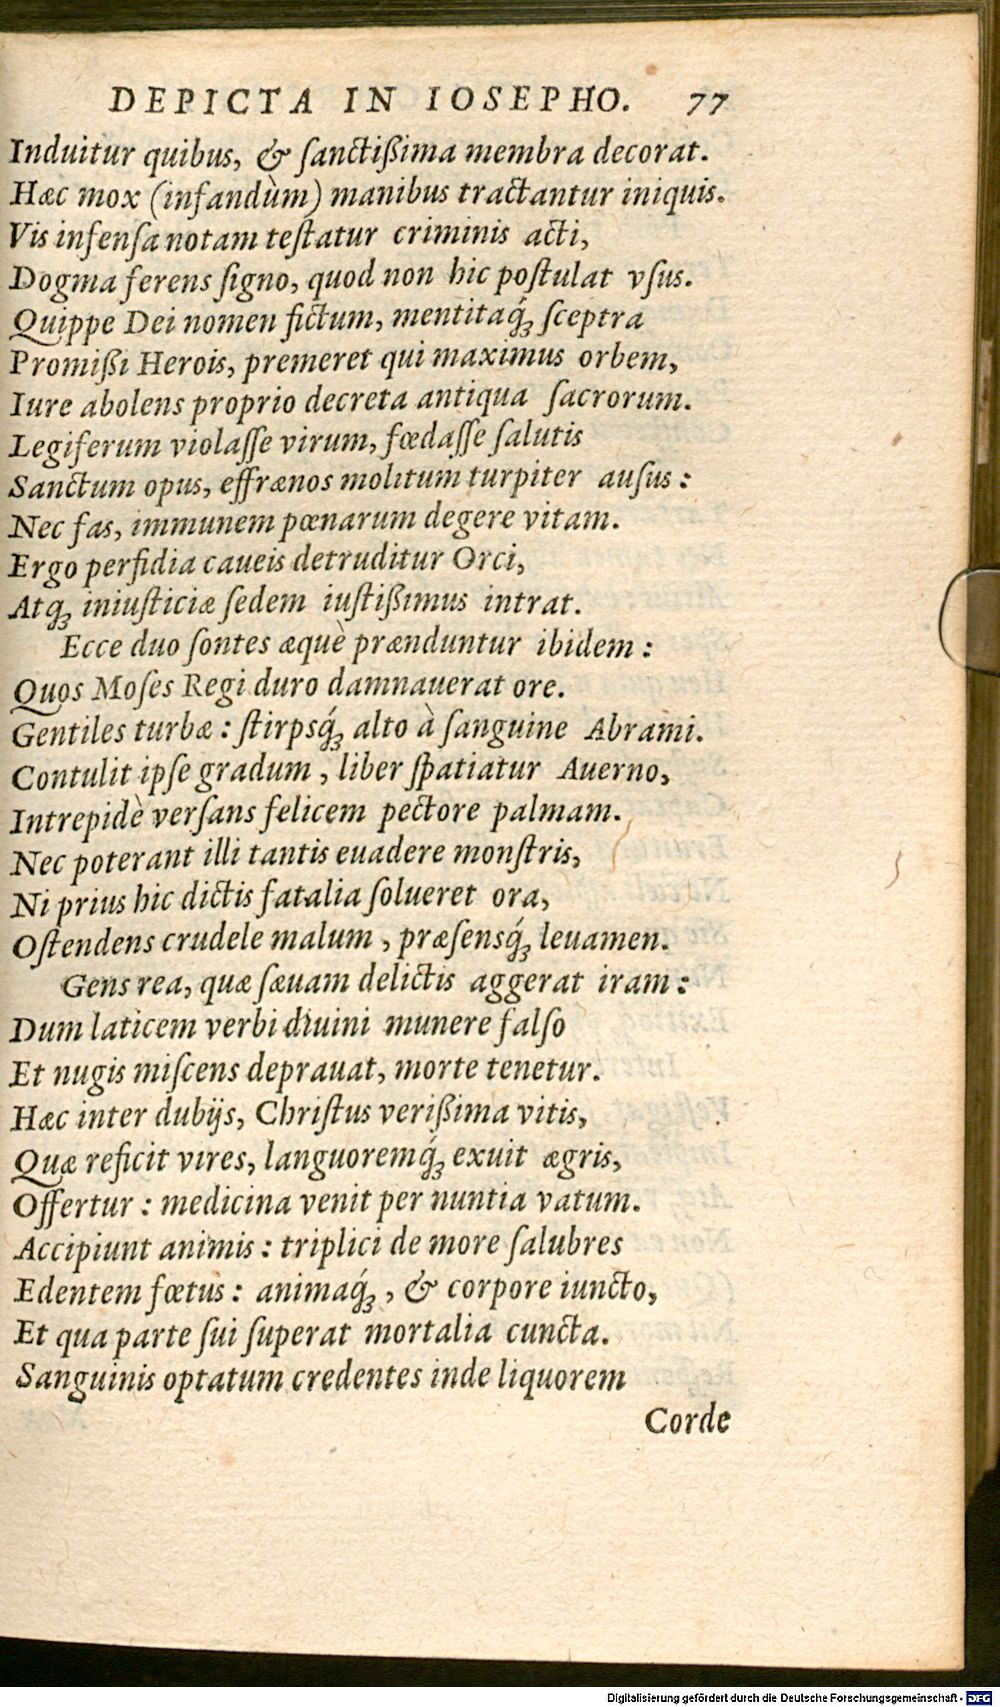 DEPICTA IN IOSEPHO. 77
Induitur quibus, & ſanctißima membra decorat.
Hæc mox (infandùm) manibus tractantur iniquis.
Vis infenſa notam teſtatur criminis acti,
Dogma ferens ſigno, quod non hic poſtulat vſus.
Quippe Dei nomen fictum, mentitaq́ꝫ ſceptra
Promißi Herois, premeret qui maximus orbem,
Iure abolens proprio decreta antiqua ſacrorum.
Legiferum violaſſe virum, fœdaſſe ſalutis
Sanctum opus, effrænos molitum turpiter auſus:
Nec fas, immunem pœnarum degere vitam.
Ergo perfidia caueis detruditur Orci,
Atqꝫ iniuſticiæ ſedem iuſtißimus intrat.
Ecce duo ſontes æquè prænduntur ibidem:
Quos Moſes Regi duro damnauerat ore.
Gentiles turbæ: ſtirpsq́ꝫ alto à ſanguine Abrami.
Contulit ipſe gradum, liber ſpatiatur Auerno,
Intrepidè verſans felicem pectore palmam.
Nec poterant illi tantis euadere monſtris,
Ni prius hic dictis fatalia ſolueret ora,
Oſtendens crudele malum, præſensq́ꝫ leuamen.
Gens rea, quæ ſæuam delictis aggerat iram:
Dum laticem verbi diuini munere falſo
Et nugis miſcens deprauat, morte tenetur.
Hæc inter dubijs, Chriſtus verißima vitis,
Quæ reficit vires, languoremq́ꝫ exuit ægris,
Offertur: medicina venit per nuntia vatum.
Accipiunt animis: triplici de more ſalubres
Edentem fœtus: animaq́ꝫ, & corpore iuncto,
Et qua parte ſui ſuperat mortalia cuncta.
Sanguinis optatum credentes inde liquorem
Corde
Digitalisierung gefördert durch die Deutsche Forschungsgemeinschaft - DFG